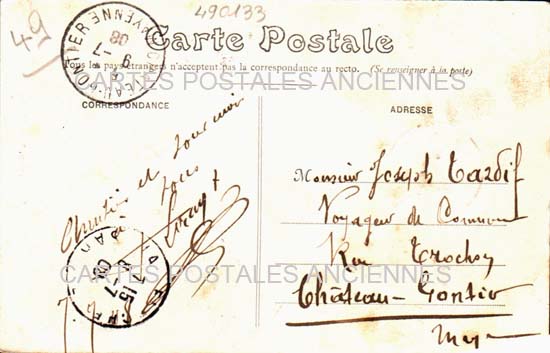 49
490133
CHATEAU-GONTIER
MAYENNE
9 -7
08
Carte Postale
Tous les pays étrangers n'acceptent pas la correspondance au recto. (Se renseigner à la poste)
CARTES POSTALES ANCIENNES
CORRESPONDANCE
ADRESSE
et souvenir
à tous
Monsieur Joseph Tardif
Voyageur de Commerce
Rue Trochon
Château-Gontier
CARTES POSTALES ANCIENNES
15
8 -7
08